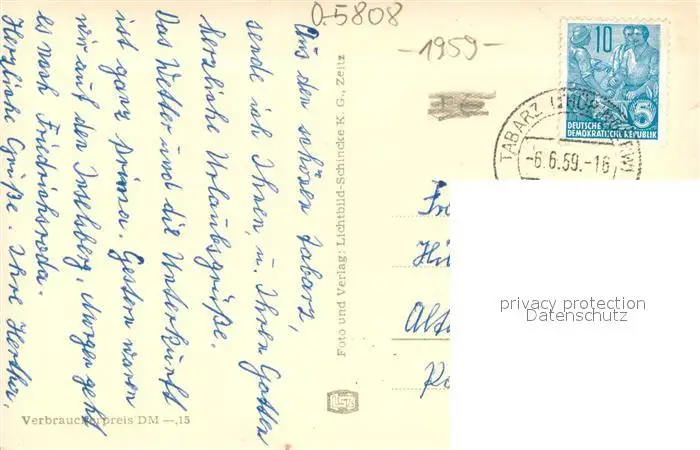 Aus dem schönen Tabarz,
sende ich Ihnen, u. Ihren Gatten
herzliche Urlaubsgrüße.
Das Wetter und die Unterkunft
ist ganz prima. Gestern waren
wir auf den Inselsberg, Morgen geht
es nach Friedrichsroda.
Herzliche Grüße. Ihre Hertha.
Verbraucherpreis DM —,15
Foto und Verlag: Lichtbild-Schincke K. G., Zeitz
D-5808
-1959-
10
5
DEUTSCHE
DEMOKRATISCHE REPUBLIK
TABARZ (THÜR
-6.6.59.-16
privacy protection
Datenschutz